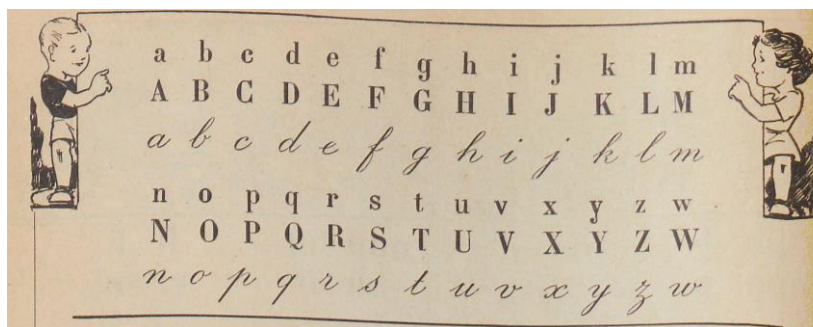 a b c d e f g h i j k l m
A B C D E F G H I J K L M
a b c d e f g h i j k l m
n o p q r s t u v x y z w
N O P Q R S T U V X Y Z W
n o p q r s t u v x y z w